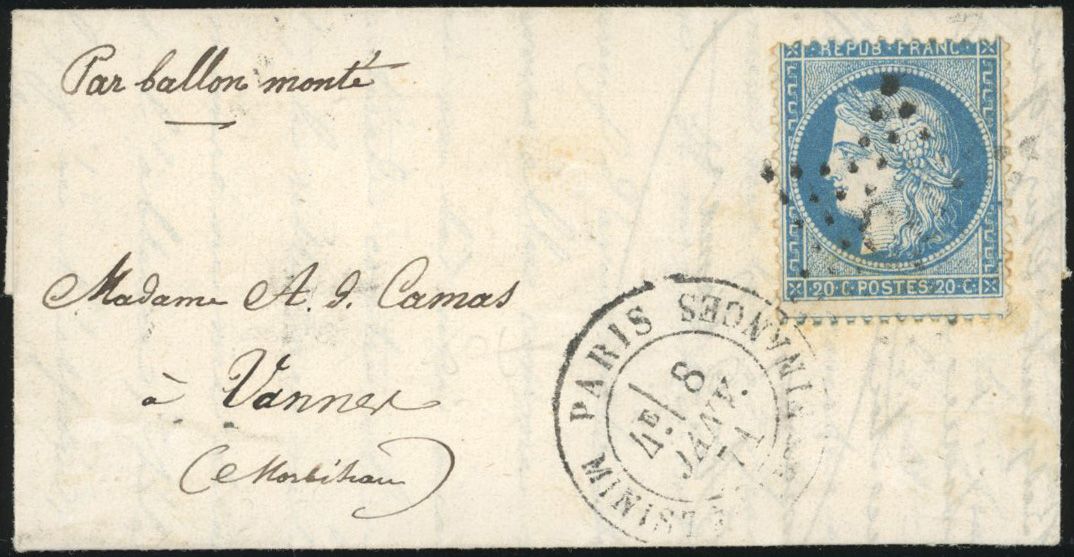 Par ballon monté
REPUB·FRANC·
20 C·POSTES·20 C·
Madame A. d. Camas
à Vannes
(Morbihan)
PARIS
FINANCES
4E/
8
JANV.
71